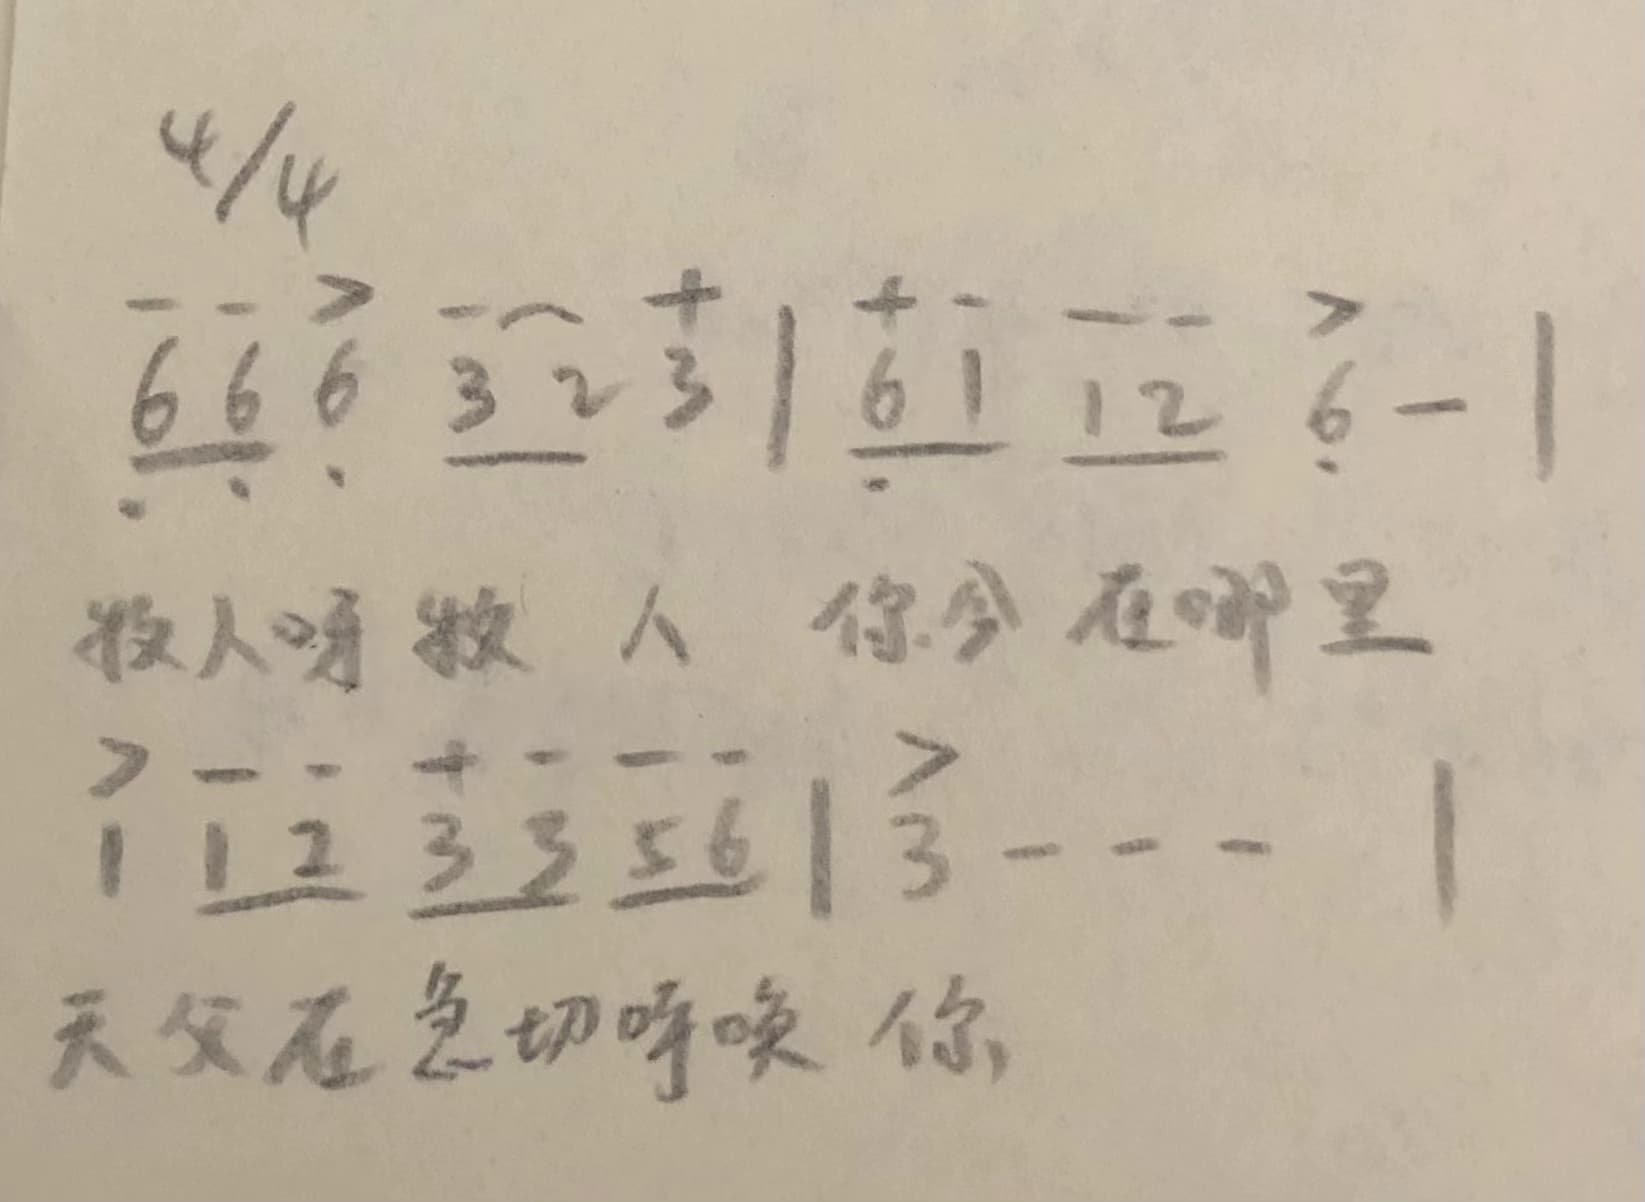 4/4
- - > - ⌒ + + - - - >
6 6 6 3 2 3 | 6 1 1 2 6 - |
牧人呀牧 人 你今在哪里
> - - + - - - >
1 1 2 3 3 5 6 | 3 - - - |
天父在急切呼唤你,